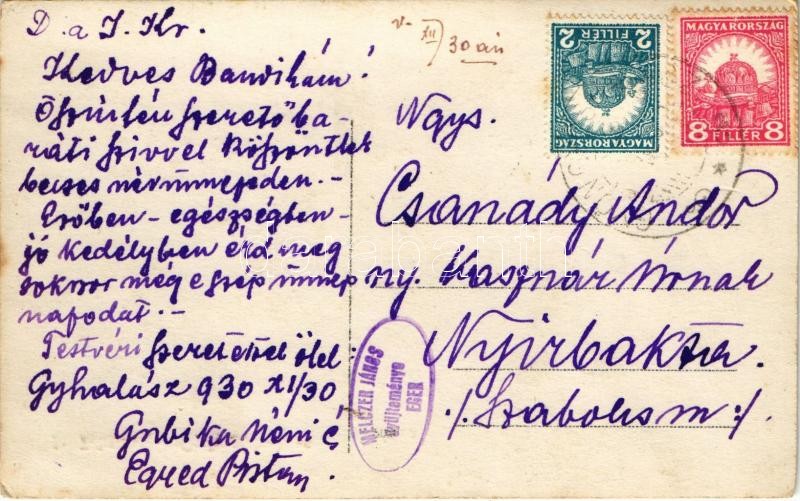 D. a J. Kr.
Kedves Bandikám!
Őszintén szerető ba-
ráti szivvel köszöntlek
becses névünnepeden. -
Erőben - egészségben -
jó kedélyben érd meg
sokszor még e szép ünnep
napodat. -
Testvéri szeretettel ölel:
Gyhalász 930 XI/30
Gubika néni é
Egred Pistan.
XII/30 án
2
FILLÉR
MAGYARORSZÁG
MAGYARORSZÁG
8 FILLÉR 8
Ngys.
Csanády Andor
ny. Kasznár Úrnak
Nyirbakta.
/. Szabolcs m :/
MELCZER JÁNOS
gyüjteménye
EGER
darabanth